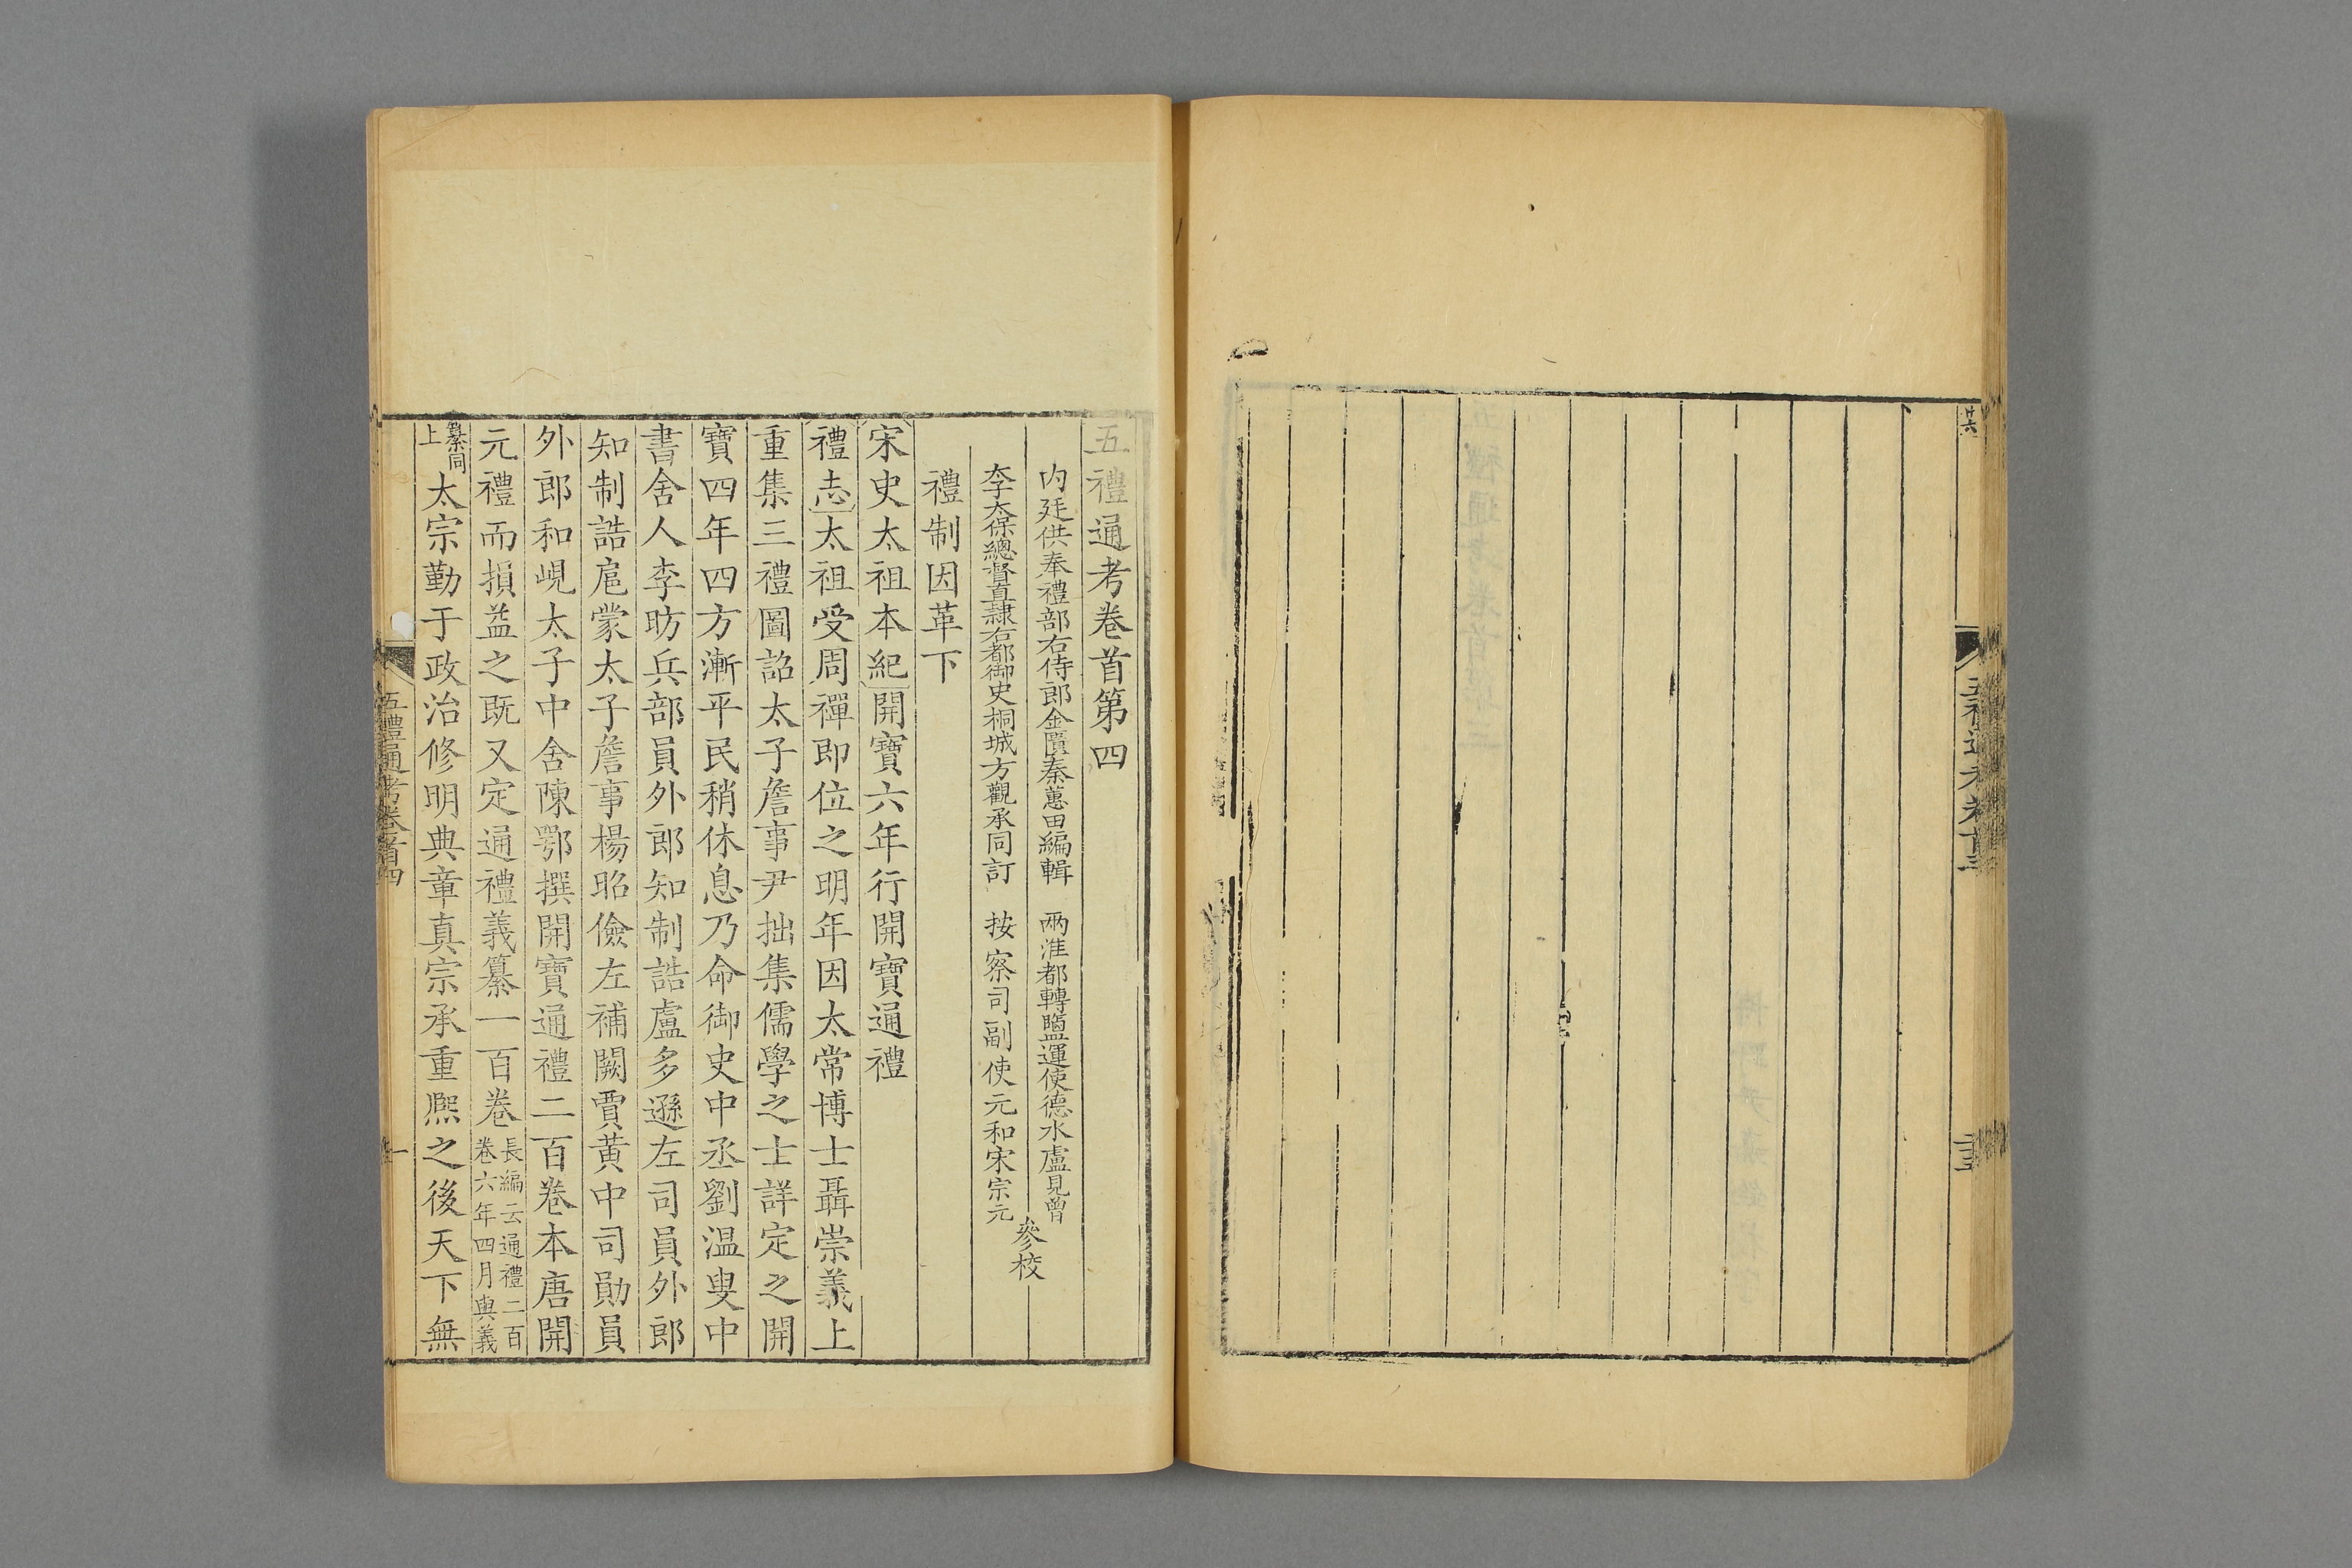 五禮通考卷首第四
內廷供奉禮部右侍郎金匱秦蕙田編輯　兩淮都轉鹽運使德水盧見曾
李太保總督直隸右都御史桐城方觀承同訂　按察司副使元和宋宗元
參校
禮制因革下
宋史太祖本紀開寶六年行開寶通禮
禮志太祖受周禪即位之明年因太常博士聶崇義上
重集三禮圖詔太子詹事尹拙集儒學之士詳定之開
寶四年四方漸平民稍休息乃命御史中丞劉溫叟中
書舍人李昉兵部員外郎知制誥盧多遜左司員外郎
知制誥扈蒙太子詹事楊昭儉左補闕賈黃中司勛員
外郎和峴太子中舍陳鄂撰開寶通禮二百卷本唐開
元禮而損益之既又定通禮義纂一百卷
長編云通禮二百
卷六年四月與義
纂同
上
太宗勤于政治修明典章真宗承重熙之後天下無
五禮通考卷首四
一